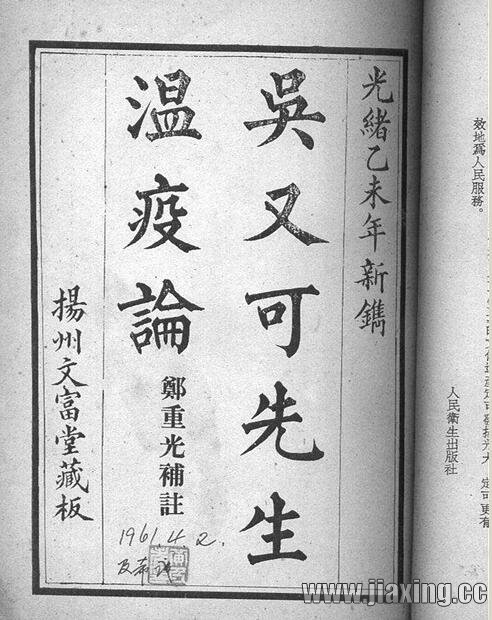 效地爲人民服務。
人民衛生出版社
光緒乙未年新鐫
吳又可先生
温疫論
鄭重光補註
揚州文富堂藏板
1961.4.2.
www.jiaxing.cc